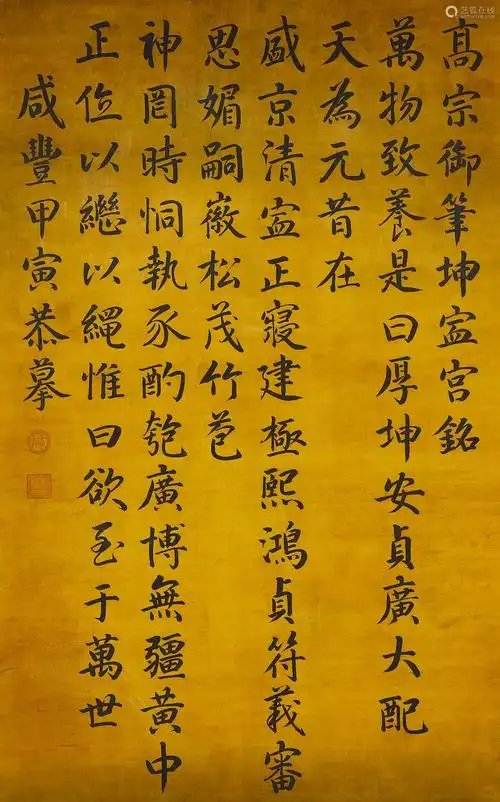 高宗御筆坤寍宮銘
萬物致養是曰厚坤安貞廣大配
天為元昔在
盛京清寍正寢建極熙鴻貞符義審
思媚嗣徽松茂竹苞
神罔時恫執豕酌匏廣博無疆黃中
正位以繼以繩惟曰欲至于萬世
咸豐甲寅恭摹
艺狐在线